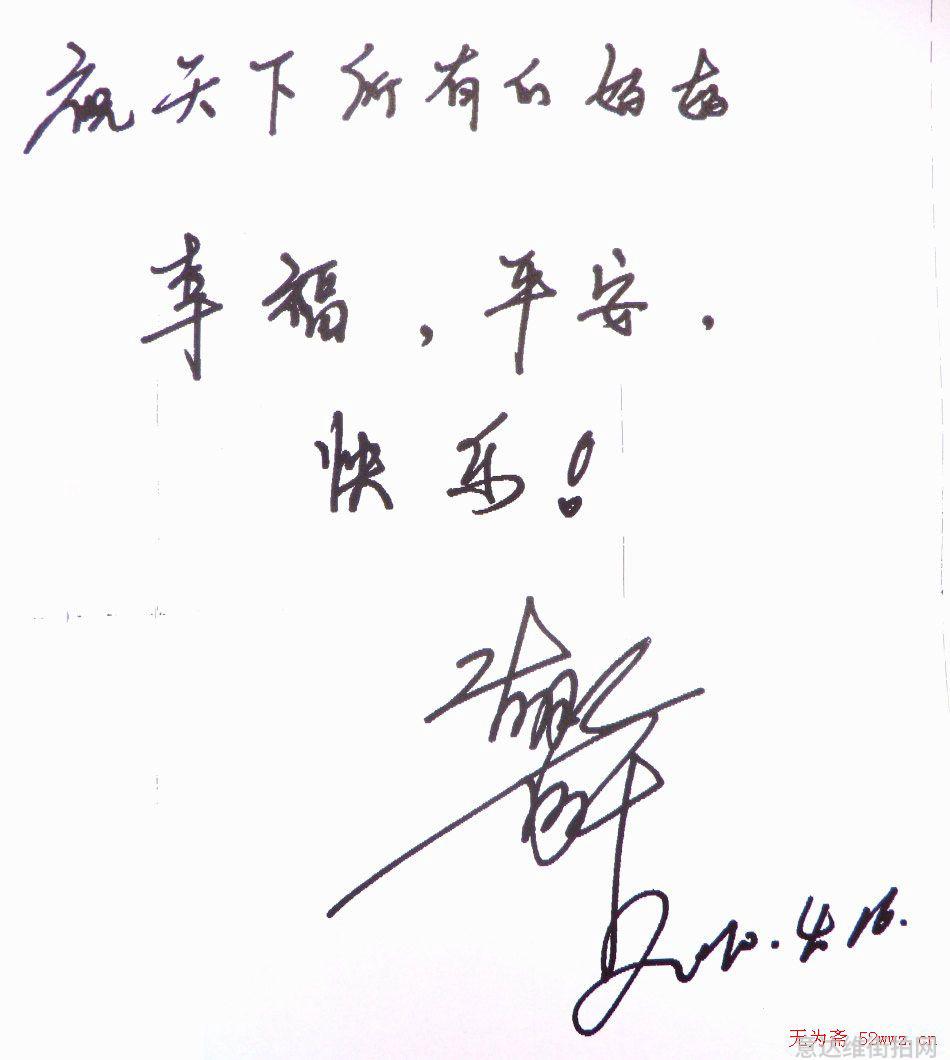 祝天下所有的妈妈
幸福，平安，
快乐！
2010.4.16.
无为斋 52wwz.cn
意达维街拍网